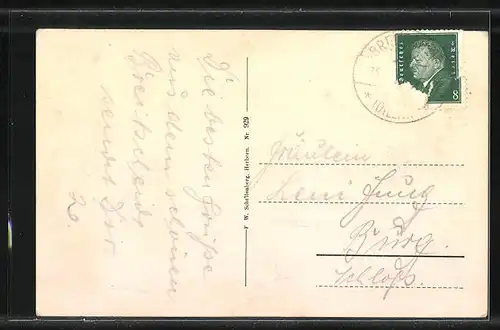 Die besten Grüße
aus dem schönen
Breitscheid
sendet Dir
F. W. Schellenberg, Herborn. Nr. 929
BRE
Deutsches
Reich
8
Fräulein
Leni Jung
Burg.
Schloß.